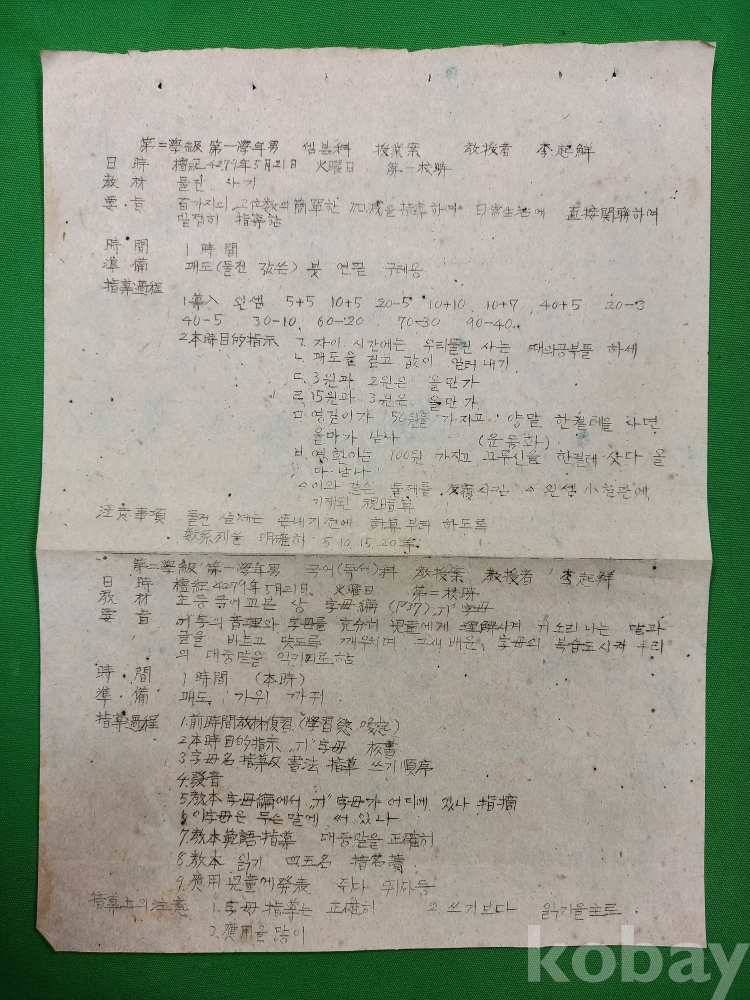 第二學級 第一學年男 셈본科 授業案 教授者 李起鮮
日時 檀紀 4279年5月21日 火曜日 第一校時
教材 물건 사기
要旨 百가지의 二位數의 簡單한 加減을 指導하여 日常生活에 直接関聯하여
밀접히 指導
時間 1時間
準備 괘도(물건 값쓴) 붓 연필
指導過程
1.導入 왼셈 5+5 10+5 20-5 10+10 10+7 40+5 20-3
40-5 30-10 60-20 70-30 90-40
2.本時目的指示 ㄱ.자이 시간에는 우리물건 사는 때의공부를 하세
ㄴ.괘도을 걸고 값이 얼러 내기
ㄷ.3원과 2원은 올만가
ㄹ.15원과 3원은 올만가
ㅁ.영길이가 50원을 가지고 양말 한켤레을 사면
올마가 남나 (운동화)
ㅂ.영환이는 100원 가지고 고무신을 한켤레 삿다 올
마 남나
이와 같은 문제를 反覆시킨 왼셈 小칠판에
기재된 視暗算
注意事項 물건 살때는 돈내기전에 計算부터 하도록
数系列을 明確히 5.10.15.20等
第二學級 第一學年男 국어(독서)科 教授案 教授者 李起鮮
日時 檀紀 4279年5月21日 火曜日 第二校時
教材 초등국어교본 상 字母編 (P37) "ㅟ"字母
要旨 "ㅟ"字의 音理와 字母를 充分히 児童에게 理解시켜 ㅟ소리나는 말과
글을 바르고 맞도록 깨우치며 그새배운 字母의 복습도시켜 우리
의 대중말을 익키피로함
時間 1時間 (本時)
準備 괘도, 가위 까귀
指導過程 1.前時間教材復習(學習態 喚定)
2.本時目的指示 "ㅟ"字母 板書
3.字母名 指導及 書法 指導 쓰기順序
4.發音
5.教本字母編에서 "ㅟ"字母가 어디에 있나 指摘
6.이字母은 무슨말에 써 있나
7.教本範語指導 대중말을 正確히
8.教本 읽기 四五名 指名讀
9.應用 児童에發表 쥐나 뛰다等
指導上의注意 1.字母指導는 正確히 2.쓰기보다 읽기을主로
3.應用을 많이
kobay